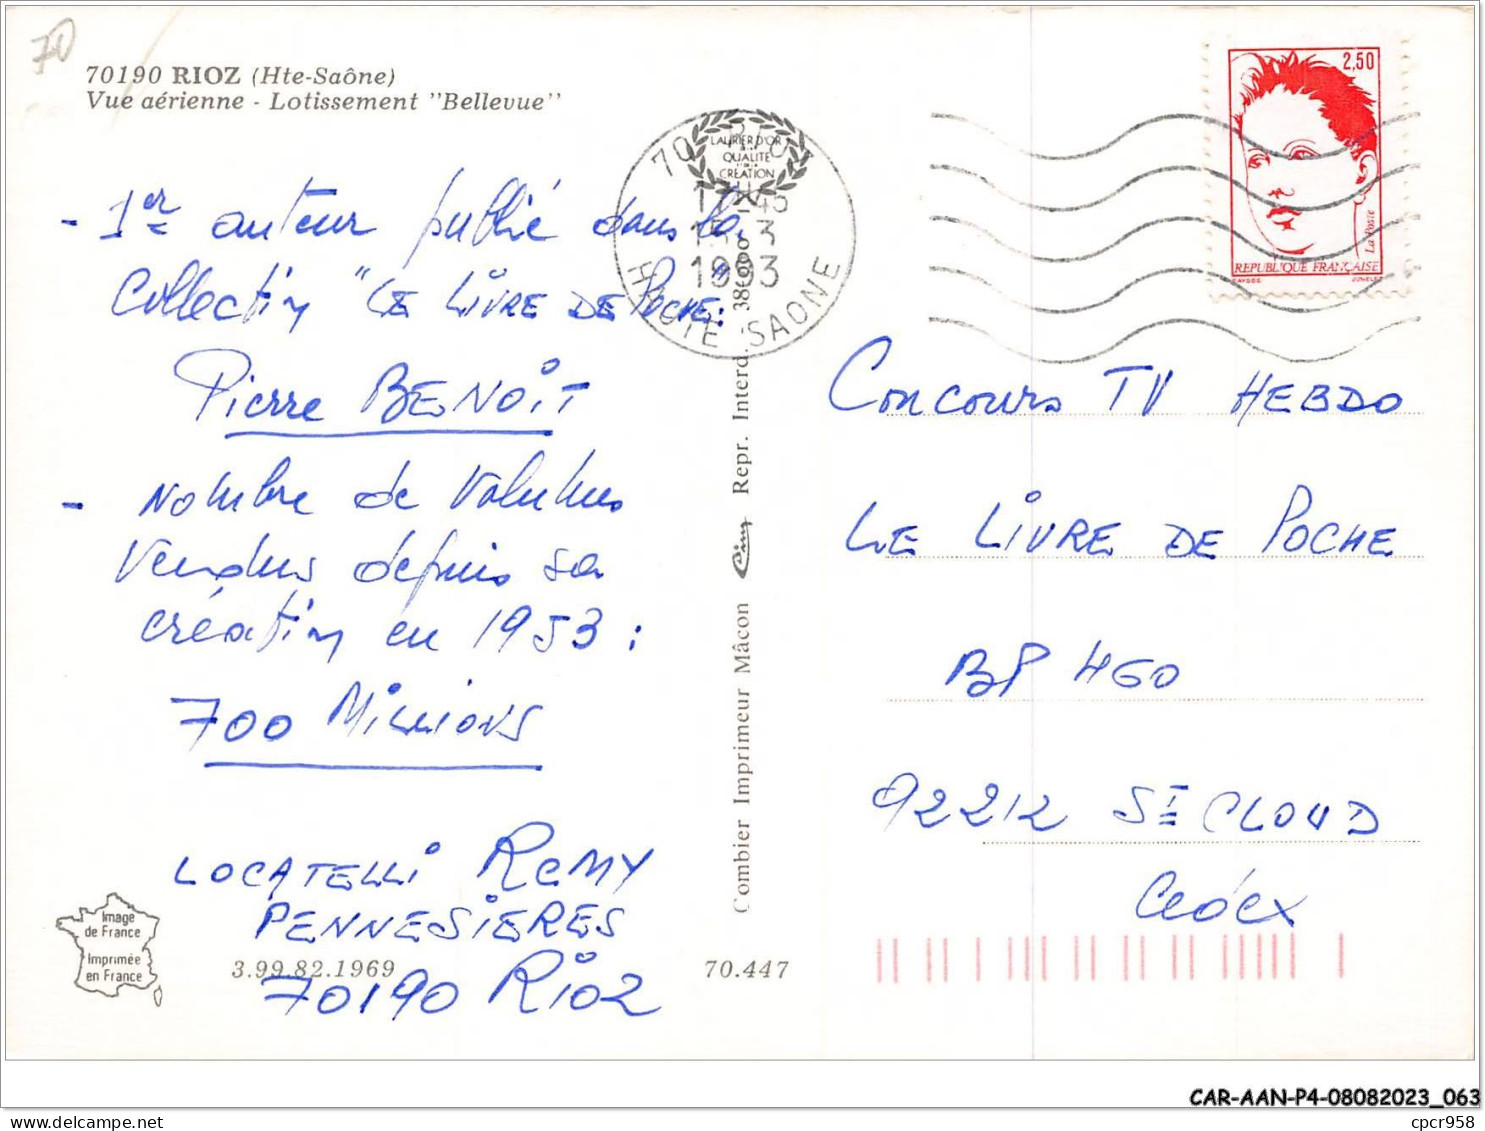 70
70190 RIOZ (Hte-Saône)
Vue aérienne - Lotissement "Bellevue"
- 1er auteur publié dans la
Collection "LE LIVRE DE POCHE":
Pierre BENOIT
- Nombre de Volumes
Vendus depuis sa
création en 1953 :
700 MILLIONS
LOCATELLI REMY
PENNESIERES
70190 RIOZ
Image
de France
Imprimée
en France
3.99.82.1969
70.447
Combier Imprimeur Mâcon
Cim
Repr. Interd.
LAURIER D'OR
QUALITE
CREATION
70 RIOZ
17-45
15-3
1993
HAUTE SAONE
2,50
La Poste
REPUBLIQUE FRANÇAISE
CONCOURS TV HEBDO
LE LIVRE DE POCHE
BP 460
92212 ST CLOUD
Cedex
CAR-AAN-P4-08082023_063
cpcr958